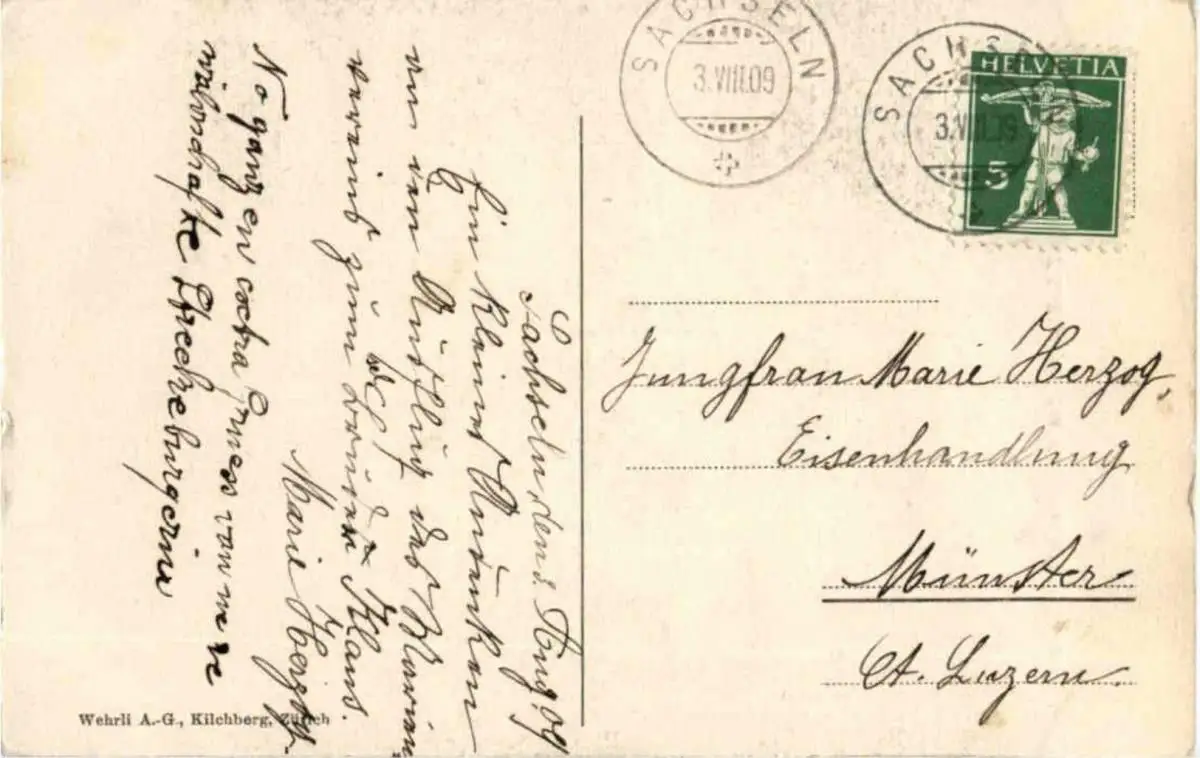 Sachseln den 2. Aug 09
Ein kleines Andenken
von dem Ausflug des Marien
vereins zum sel. Bruder Klaus.
Marie Herzog
No ganz en extra Gruess von nere
währschafte
SACHSELN
3.VIII.09
SACHSELN
3.VIII.09
HELVETIA
5
Jungfrau Marie Herzog,
Eisenhandlung
Münster
Ct. Luzern.
Wehrli A.-G., Kilchberg, Zürich